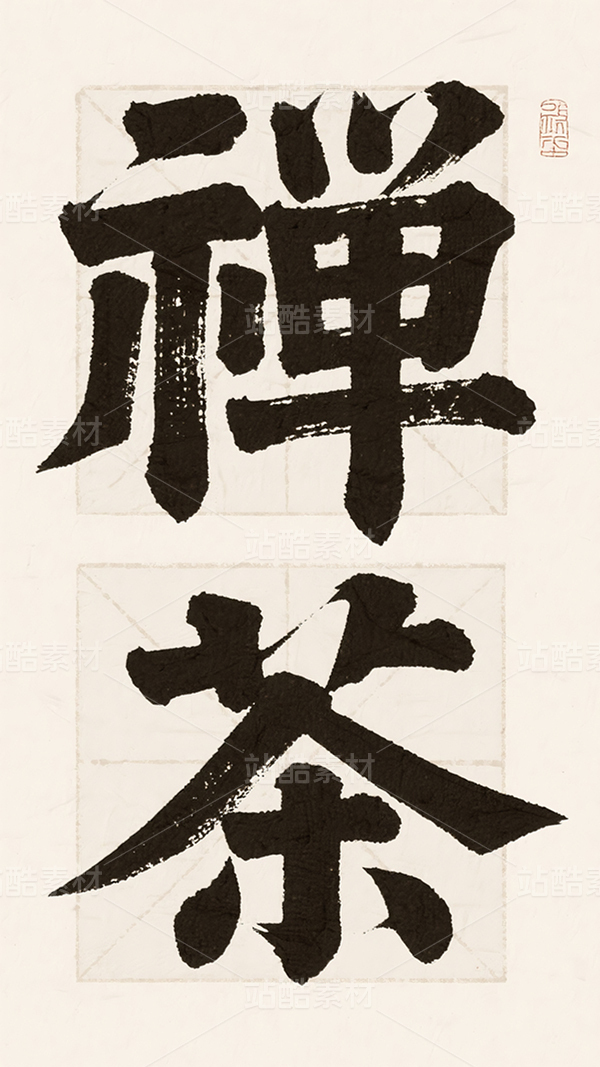 禅
茶
站酷素材